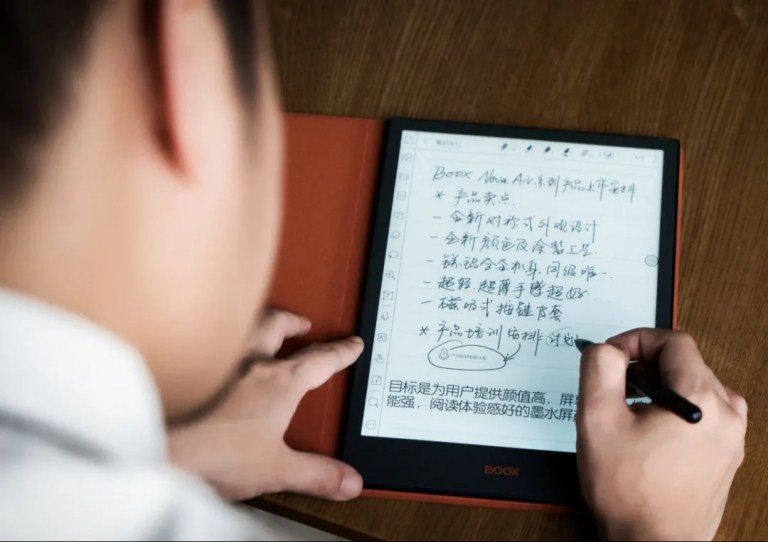 Boox Nova Air系列产品上市安排
* 产品卖点
- 全新对称式外观设计
- 全新颜色及涂装工艺
- 镁铝合金机身,同级唯一.
- 超轻.超薄手感超好.
- 磁吸式按键皮套
* 产品培训安排 计划
目标是为用户提供颜值高,屏
能强,阅读体验感好的墨水屏
BOOX